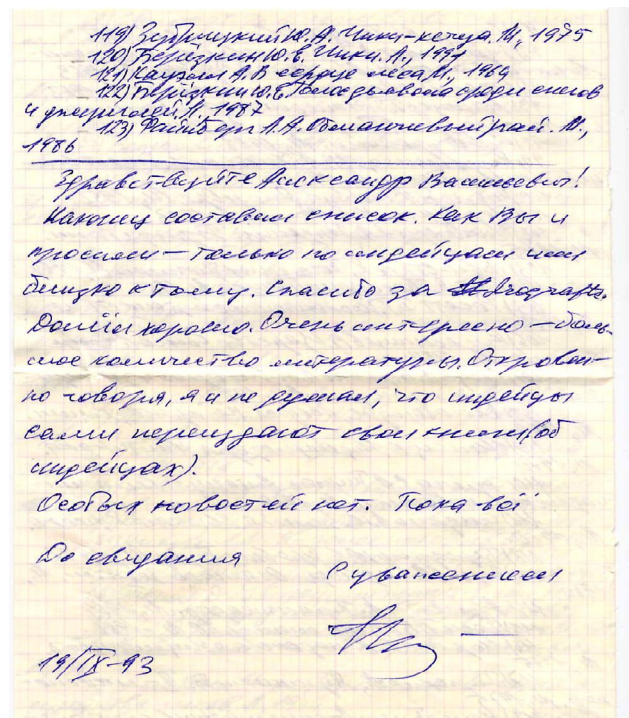 119) Зубрицкий Ю.А. Инки-кечуа. М., 1975
120) Берёзкин Ю.Е. Инки. Л., 1991
121) А.В сердце леса М., 1969
122) Берёзкин Ю.Е. Голос дьявола среди снегов
и джунглей. Л. 1987
123) Файнберг Л.А. Обманчивый рай. М.,
1986
Здравствуйте Александр Васильевич!
Наконец составил список. Как Вы и
просили – только по индейцам или
близко к тому. Спасибо за
Дошли хорошо. Очень интересно – боль-
шое количество литературы. Откровен-
но говоря, я и не думал, что индейцы
сами переиздают свои книги (об
индейцах).
Особых новостей нет. Пока всё
До свидания
С уважением
19/IX-93